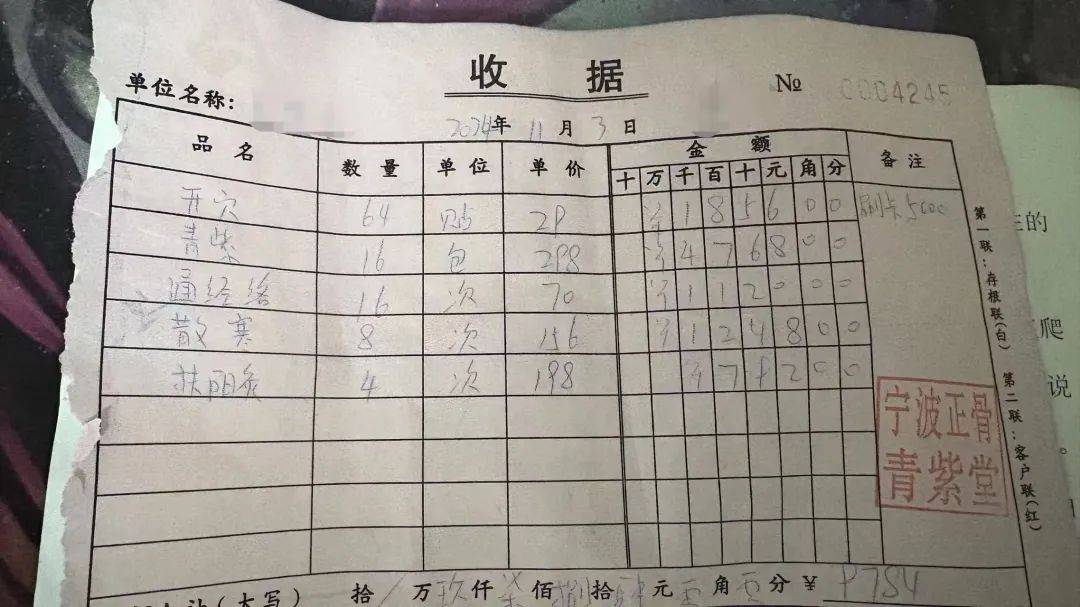 收据
№ 0004245
单位名称:
2024年 11月 3日
品名 数量 单位 单价 金额 备注
十 万 千 百 十 元 角 分
开穴 64 贴 29 ¥ 1 8 5 6 0 0 刷卡5000
青紫 16 包 298 ¥ 4 7 6 8 0 0
通经络 16 次 70 ¥ 1 1 2 0 0 0
散寒 8 次 156 ¥ 1 2 4 8 0 0
扶阳灸 4 次 198 ¥ 7 9 2 0 0
宁波正骨
青紫堂
(大写) 拾 万 玖 仟 柒 佰 捌 拾 肆 元 零 角 零 分 ¥ 9784
第一联:存根联(白) 第二联:客户联(红)
的
爬
说
。